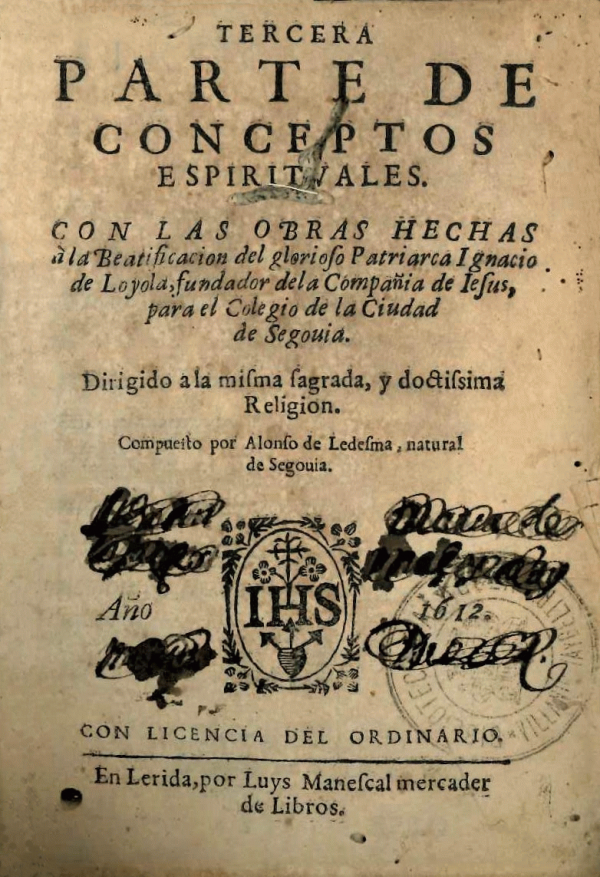 TERCERA
PARTE DE
CONCEPTOS
ESPIRITVALES.
CON LAS OBRAS HECHAS
à la Beatificacion del glorioſo Patriarca Ignacio
de Loyola, fundador dela Compañia de Ieſus,
para el Colegio de la Ciudad
de Segouia.
Dirigido a la miſma ſagrada, y doctiſsima
Religion.
Compueſto por Alonſo de Ledeſma, natural
de Segouia.
IHS
Año 1612.
CON LICENCIA DEL ORDINARIO.
En Lerida, por Luys Maneſcal mercader
de Libros.